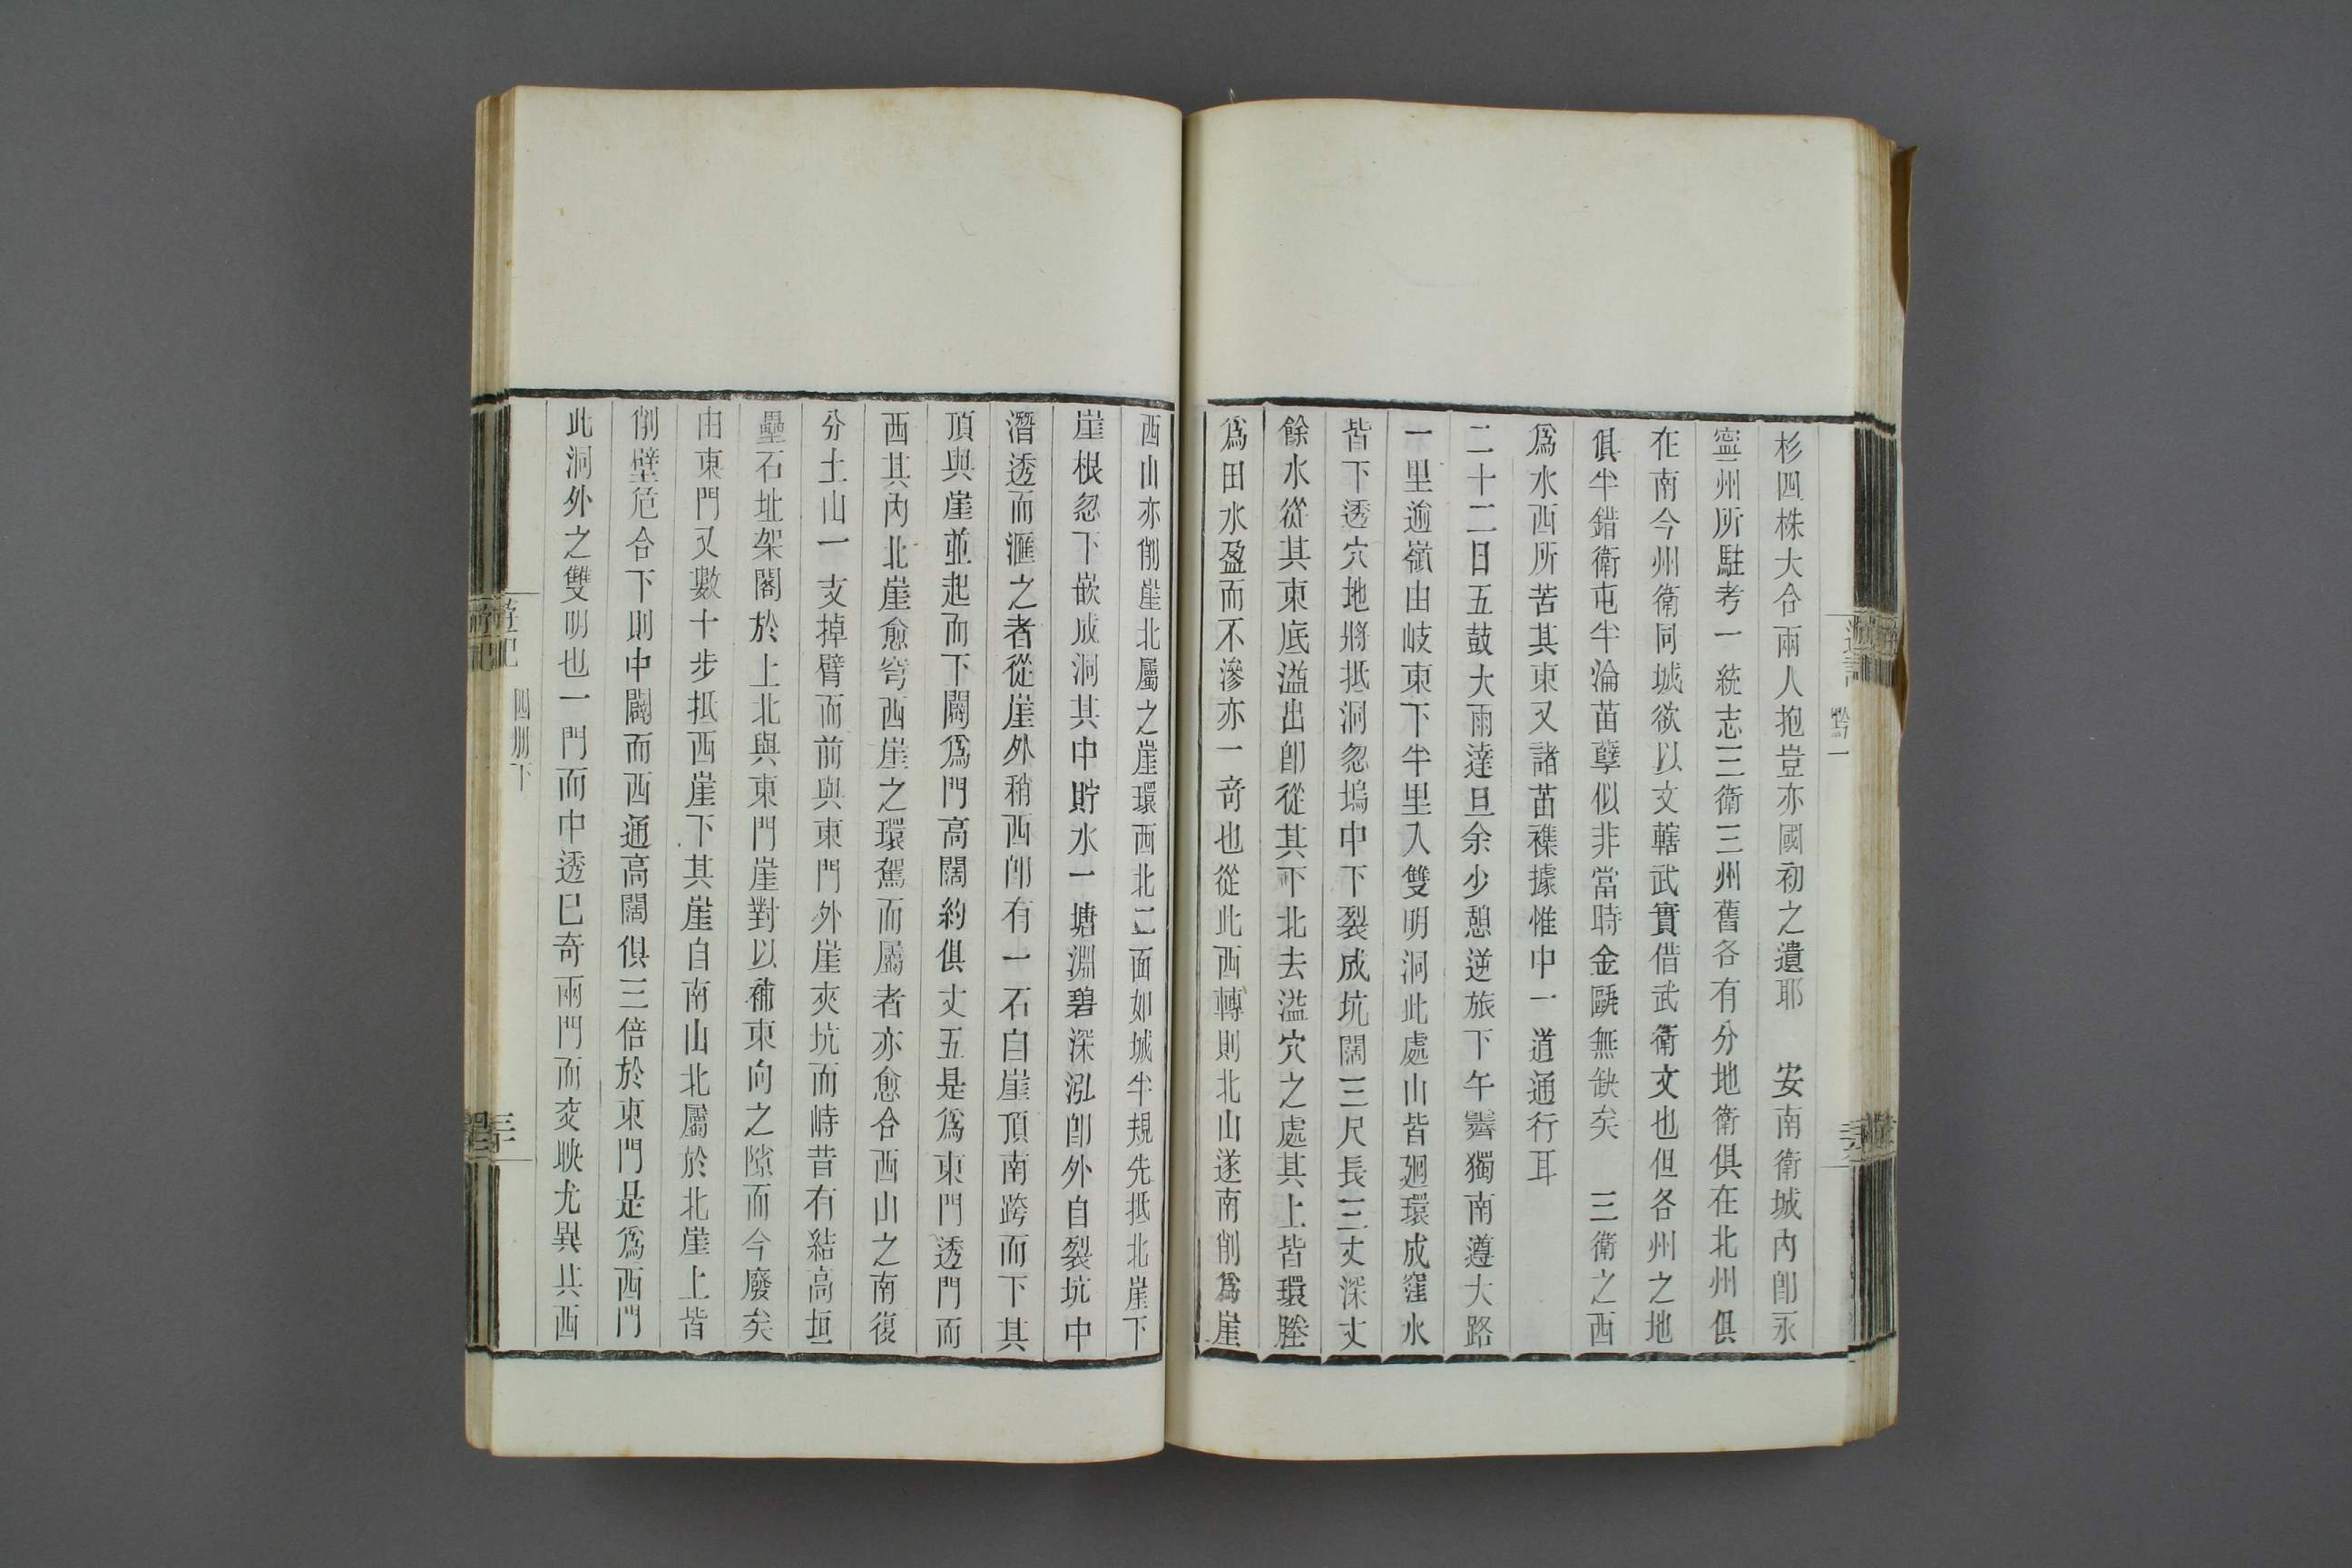 杉四株大合兩人抱豈亦國初之遺耶　安南衛城內卽永
寧州所駐考一統志三衛三州舊各有分地衛俱在北州俱
在南今州衛同城欲以文轄武實借武衛文也但各州之地
俱半錯衛屯半淪苗孽似非當時金甌無缺矣　三衛之西
爲水西所苦其東又諸苗襍據惟中一道通行耳
二十二日五鼓大雨達旦余少憩逆旅下午霽獨南遵大路
一里逾嶺由岐東下半里入雙明洞此處山皆廻環成窪水
皆下透穴地將抵洞忽塢中下裂成坑闊三尺長三丈深丈
餘水從其東底溢出卽從其下北去溢穴之處其上皆環塍
爲田水盈而不滲亦一奇也從此西轉則北山遂南削爲崖
西山亦削崖北屬之崖環西北二面如城半規先抵北崖下
崖根忽下嵌成洞其中貯水一塘淵碧深泓卽外自裂坑中
潛透而滙之者從崖外稍西卽有一石自崖頂南跨而下其
頂與崖並起而下闢爲門高闊約俱丈五是爲東門透門而
西其內北崖愈穹西崖之環駕而屬者亦愈合西山之南復
分土山一支掉臂而前與東門外崖夾坑而峙昔有結高垣
壘石址架閣於上北與東門崖對以補東向之隙而今廢矣
由東門又數十步抵西崖下其崖自南山北屬於北崖上皆
削壁危合下則中闢而西通高闊俱三倍於東門是爲西門
此洞外之雙明也一門而中透已奇兩門而交映尤異其西
四册下
黔一